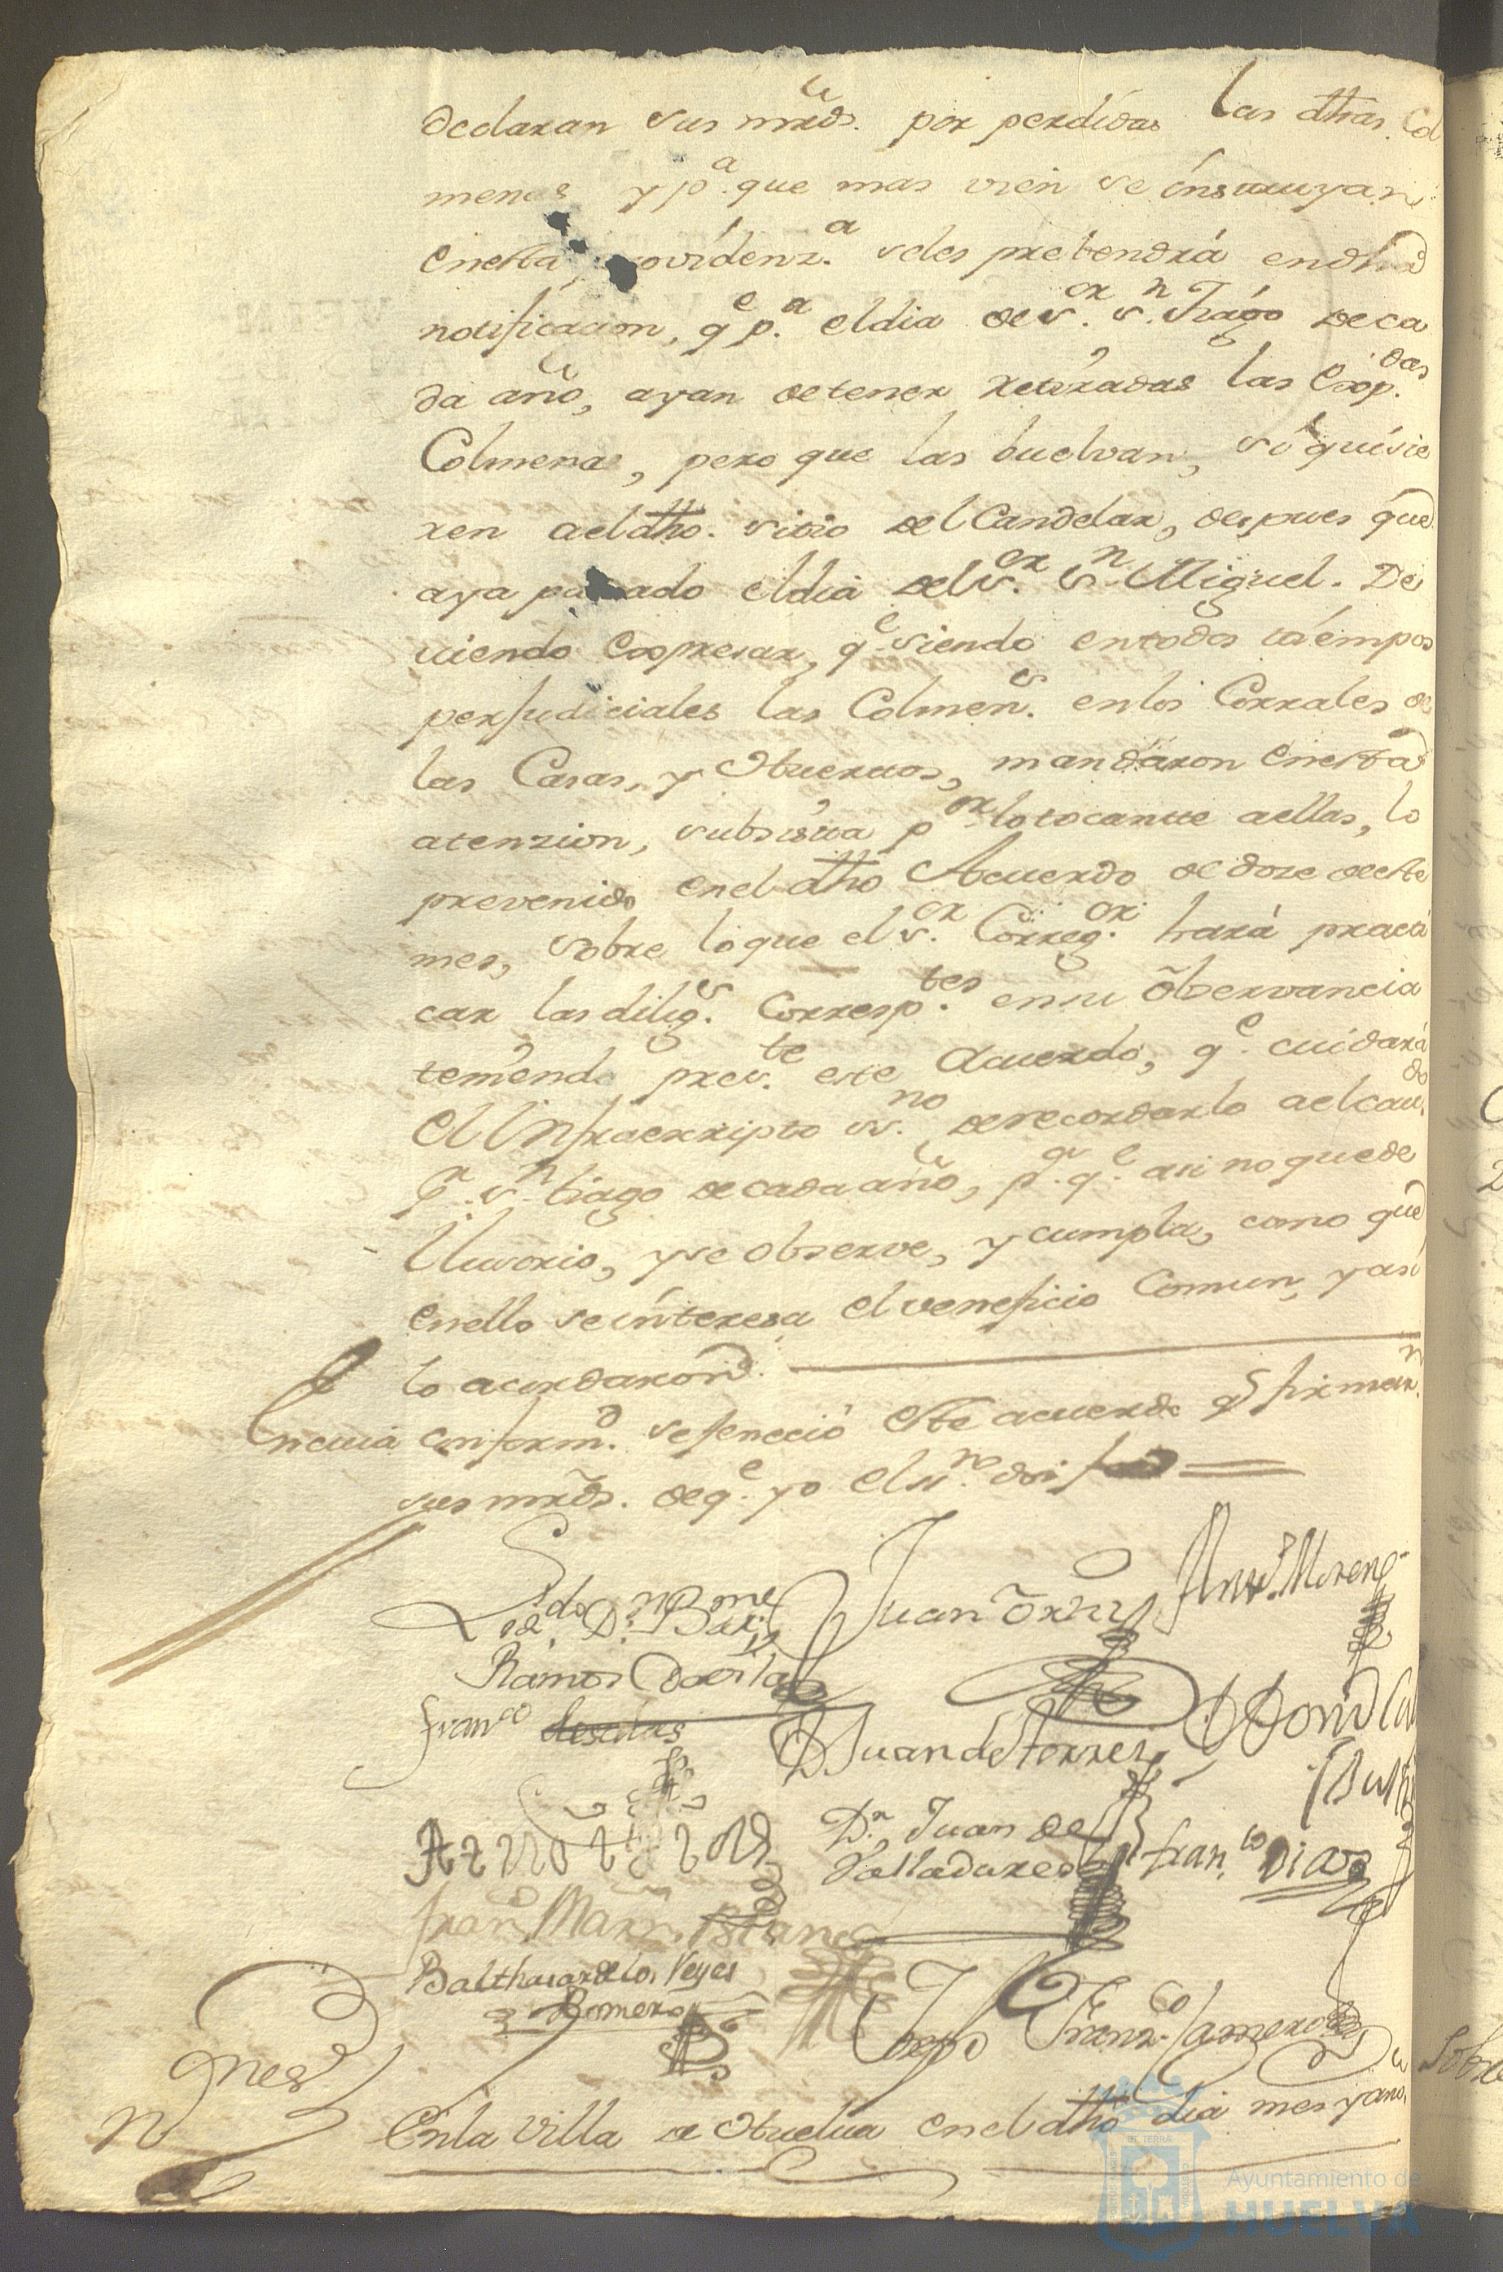 declaran sus mrds. por perdidas las dhas. Col
menas y pa. que mas vien se instruyan
en esta providenza. seles pretendrá en dha
notificacion, qe pa. el dia de sor. sn. Tiago de ca
da año, ayan de tener retiradas las expdas.
Colmenas, pero que las buelvan, si quisie
ren a el dho. sitio del Candelar, despues que
aya pasado el dia del sor. sn. Miguel. De
viendo expresar, qe siendo en todos tiempos
perjudiciales las Colmens. en los Corrales de
las Casas, y Huertos, mandaron en esta
atenzion, subsista por lo tocante a ellas, lo
prevenido en el dho Acuerdo de doze de este
mes, sobre lo que el sor. Corregor. hará practi
car las diligs. Corresptes. en su observancia
teniendo preste. este Acuerdo, qe. cuidará
el Infraescripto ssno. de recordarlo a el cavdo.
pa. sn. tiago de cada año, pa. qe. asi no quede
Ylusorio, y se observe, y cumpla, como que
en ello se interesa el veneficio Comun, y asi
lo acordaron.
En cuia conformd. se feneció este acuerdo qe firman.
sus mrds. de qe. yo el sno. doi fee
Lizdo. Dn. Barme
Ramos Davila
Juan Ortiz
Anto. Moreno
Franco
D Juan de Torres
Dn. Juan de
Valladares
Franco Dias
Fran Marn. Blanco
Balthasar de los Reyes
Romero
Franco. Camero
En la Villa de Huelva en el dho dia mes y año,
Sobre
Ayuntamiento de
HUELVA